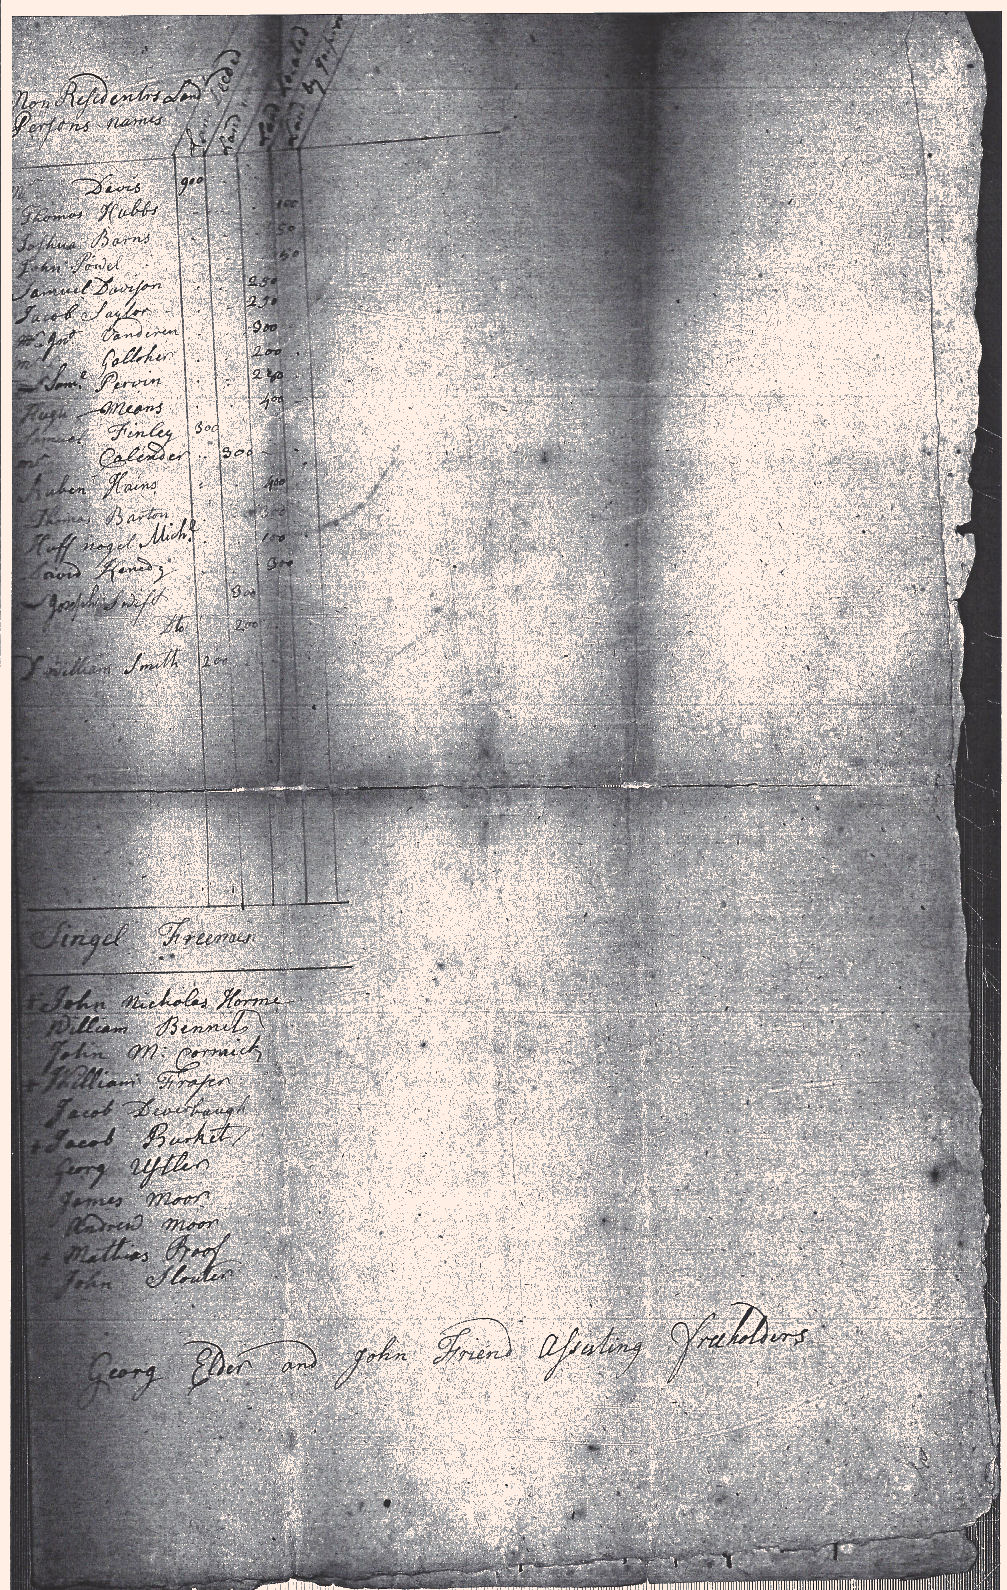 Non Residentrs Land
Persons names
Land Deeded
Land Located
Land by
Davis 900
Thomas Hubbs 100
Joshua Barns 50
John 50
Samuel Davison 250
Jacob Saylor 250
Vanderen 300
Galloher 200
Saml Pervin
Hugh Means 400
Samuel Finley 300
mr Calender 300
Ruben Hains 400
Thomas Barton 300
Huff nagel Michl 100
David Kenedy 300
Joseph Swift 300
Dto 200
D William Smith 200
Singel Freemen
John Nicholas Horme
William Bennet
John Mc Cormick
William Fraser
Jacob Deverbaugh
Jacob Burket
Georg
James Moor
Andrew Moor
Mathias Proof
John Slouter
Georg Elder and John Friend Assesting freeholders